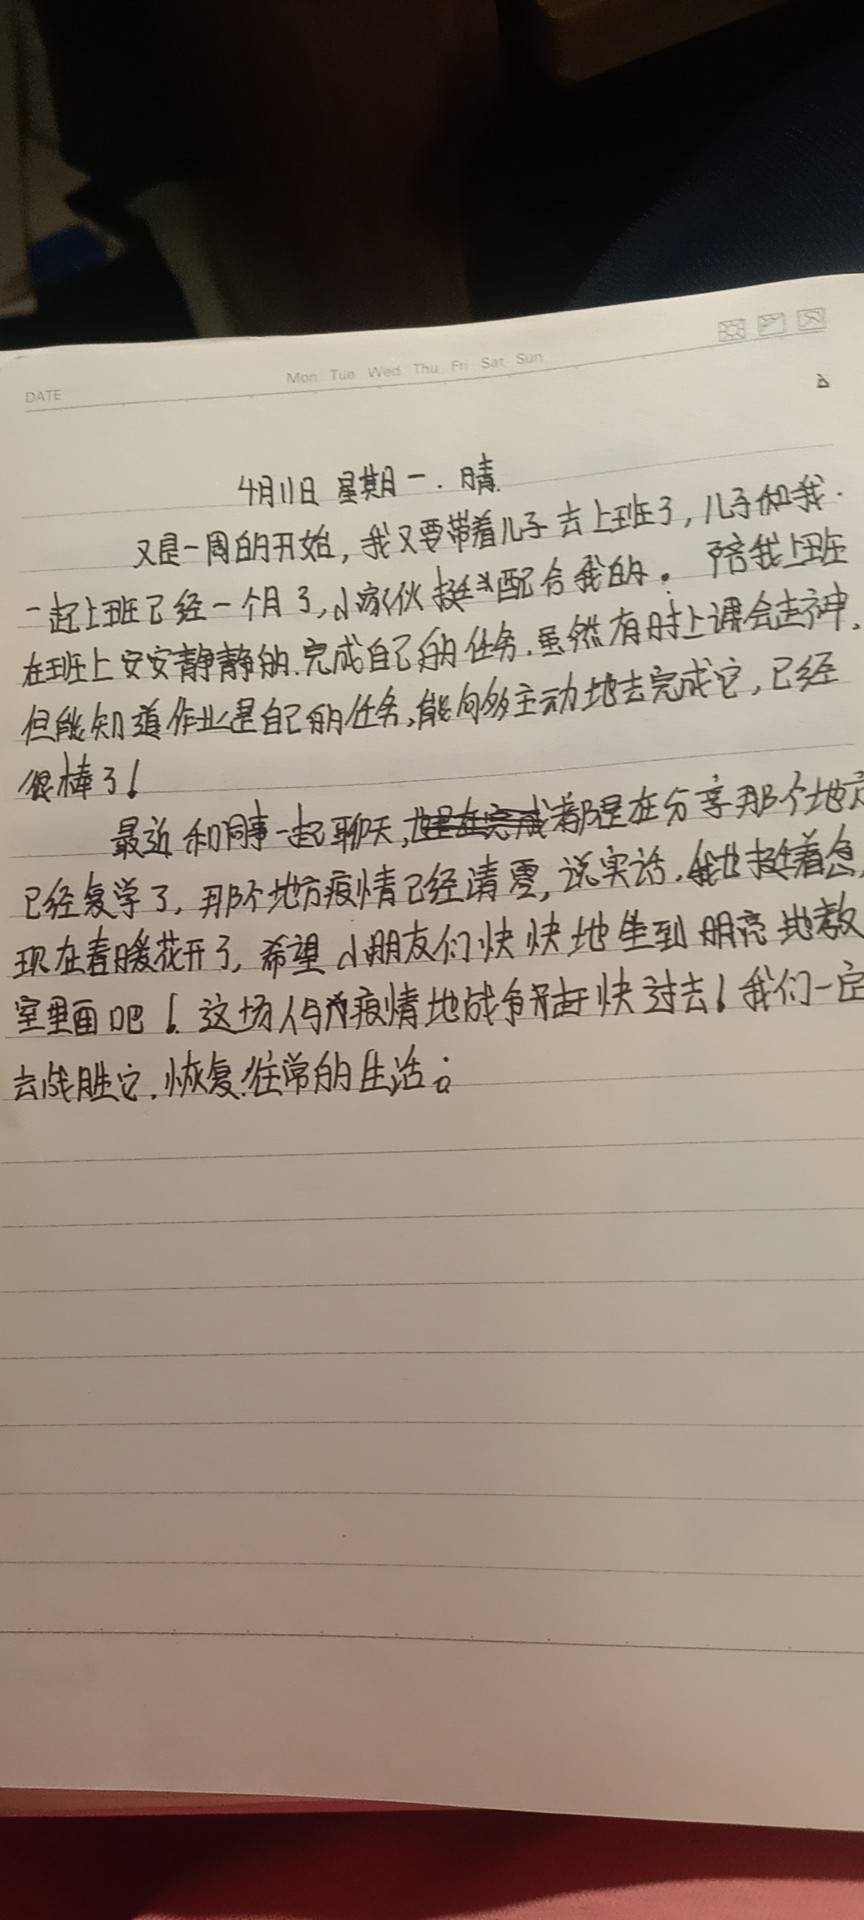 DATE
Mon Tue Wed Thu Fri Sat Sun
4月11日 星期一. 晴.
又是一周的开始,我又要带着儿子去上班了,儿子和我.
一起上班已经一个月了,小家伙挺配合我的。陪我上班
在班上安安静静的.完成自己的任务.虽然有时上课会走神.
但能知道作业是自己的任务,能够主动地去完成它,已经
很棒了!
最近和同事一起聊天,都是在分享那个地方
已经复学了,那个地方疫情已经清零,说实话.我也挺着急,
现在春暖花开了,希望小朋友们快快地坐到明亮地教
室里面吧!这场与疫情地战争赶快过去!我们一定
去战胜它.恢复往常的生活。